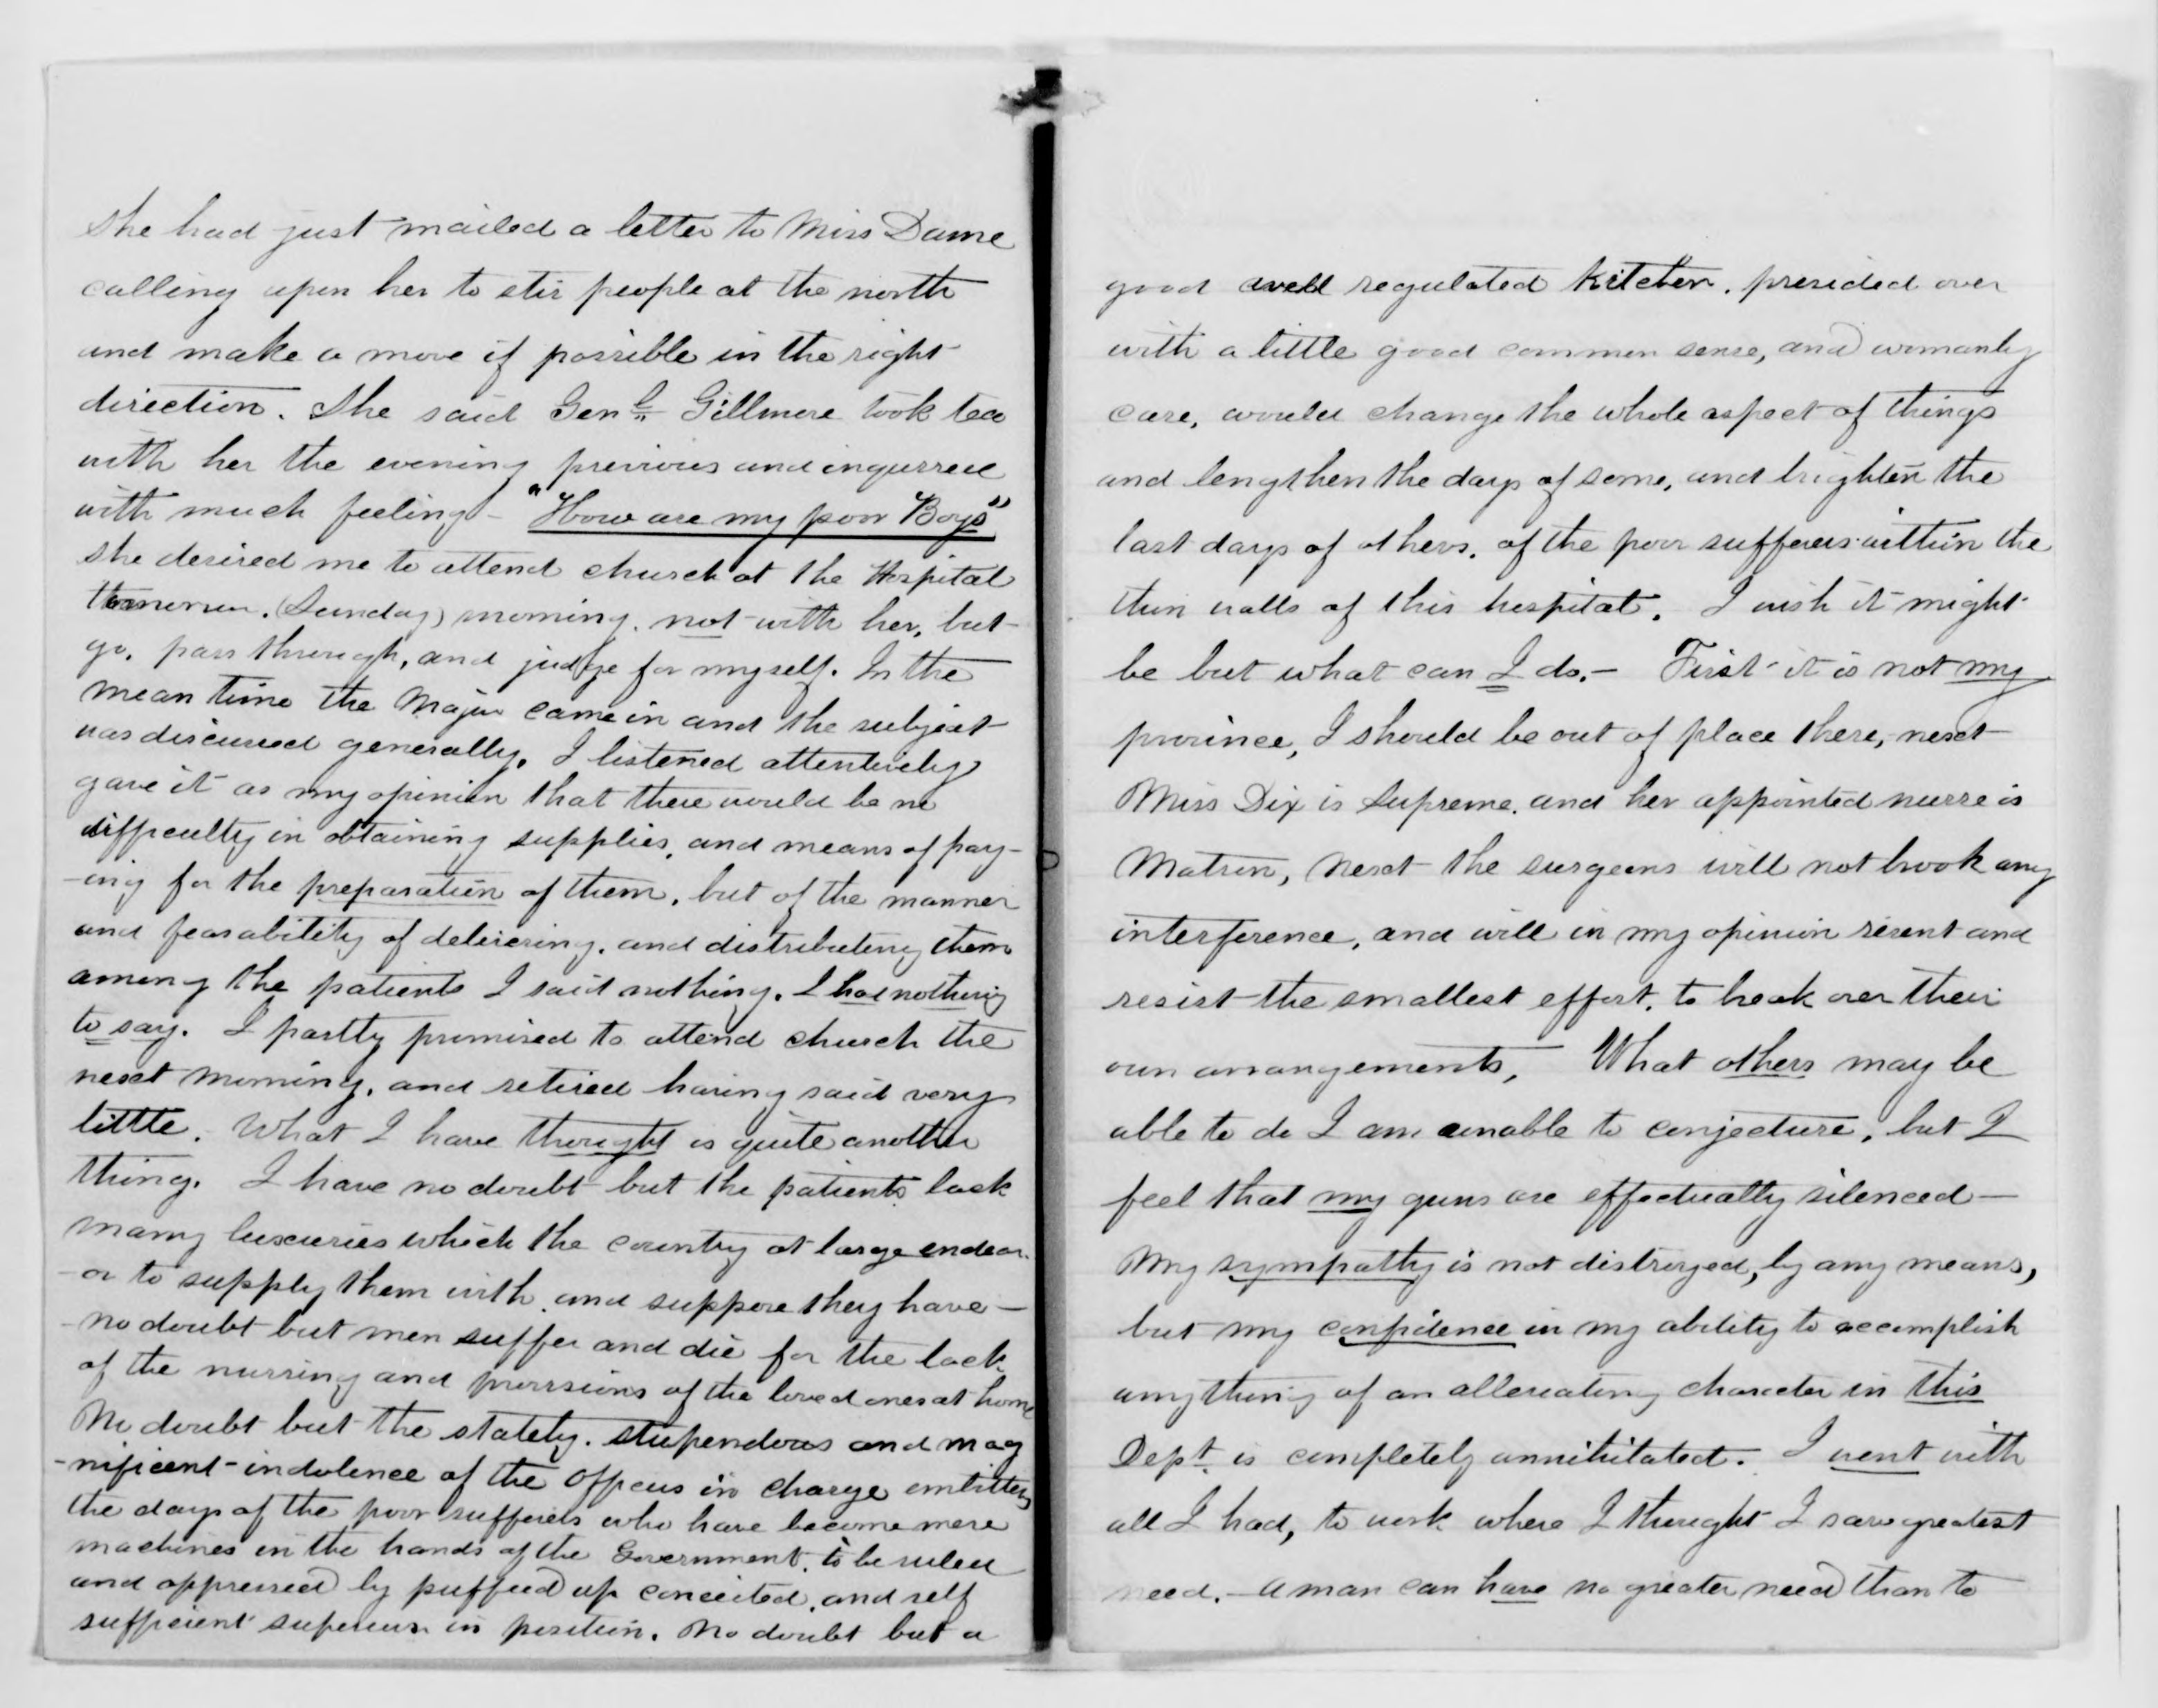 she had just mailed a letter to Miss Dame
calling upon her to stir people at the north
and make a move if possible in the right
direction. She said Genl Gillmore took tea
with her the evening previous and inquired
with much feeling - "How are my poor Boys"
she desired me to attend church at the Hospital
tomorrow. (Sunday) morning. not with her, but
go, pass through, and judge for myself. In the
mean time the Major came in and the subject
was discussed generally. I listened attentively
gave it as my opinion that there would be no
difficulty in obtaining supplies, and means of pay-
-ing for the preparation of them, but of the manner
and feasability of delivering, and distributing them
among the patients I said nothing. I had nothing
to say. I partly promised to attend church the
next morning, and retired having said very
little. What I have thought is quite another
thing. I have no doubt but the patients lack
many luxuries which the country at large endeav-
-or to supply them with and suppose they have -
- no doubt but men suffer and die for the lack
of the nursing and provisions of the loved ones at home
No doubt but the stately. stupendous and mag
-nificent indolence of the officers in charge embitters
the days of the poor sufferers who have become mere
machines in the hands of the Government, to be ruled
and oppressed by puffed up conceited, and self
sufficient superiors in position. No doubt but a
good well regulated kitchen, presided over
with a little good common sense, and womanly
care, would change the whole aspect of things
and lengthen the days of some, and brighten the
last days of others, of the poor sufferers within the
thin walls of this hospital. I wish it might
be but what can I do. - First it is not my
province, I should be out of place there, next
Miss Dix is Supreme. and her appointed nurse is
Matron, Next the surgeons will not brook any
interference, and will in my opinion resent and
resist the smallest effort, to break over their
own arrangements, What others may be
able to do I am unable to conjecture, but I
feel that my guns are effectually silenced -
My sympathy is not distroyed, by any means,
but my confidence in my ability to accomplish
anything of an alleviating character in this
Dept. is completely annihilated. I went with
all I had, to work where I thought I saw greatest
need. - A man can have no greater need than to